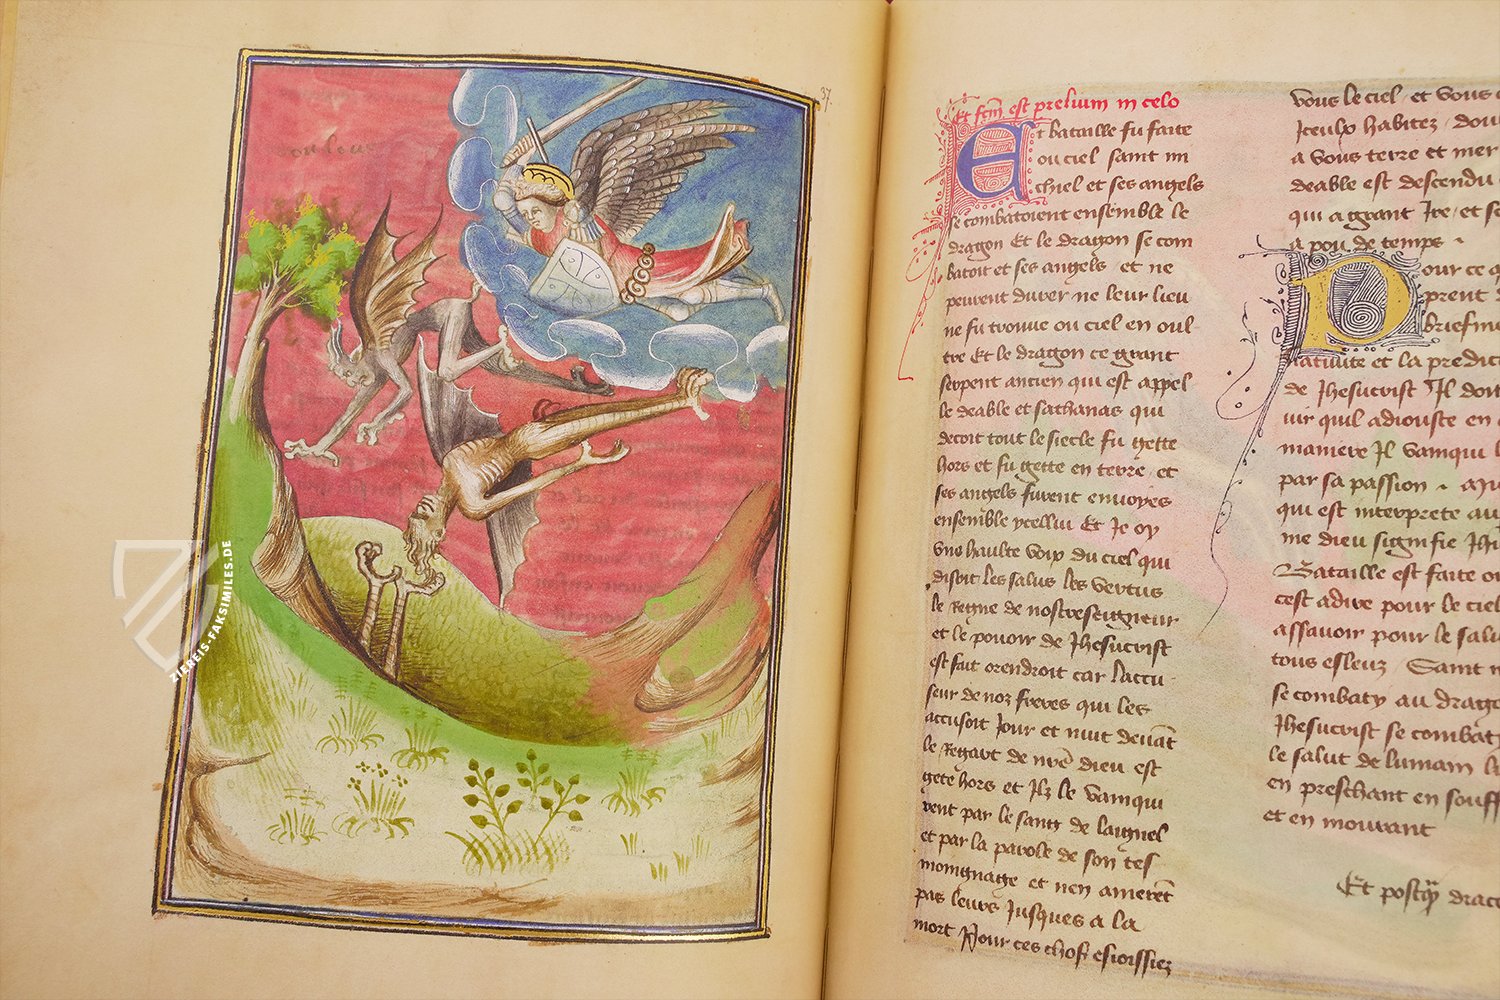 37.
Et fcm est prelium in celo
Et bataille fu faite
ou ciel saint mi
chiel et ses angels
se combatoient ensemble le
dragon Et le dragon se com
batoit et ses angels et ne
peurent durer ne leur lieu
ne fu trouue ou ciel en oul
tre Et le dragon ce grant
serpent ancien qui est appel
le deable et sathanas qui
decoit tout le siecle fu gette
hors et fu gette en terre et
ses angels furent enuoyes
ensemble ycellui Et Je oy
vne haulte voix du ciel qui
disoit les salus les vertus
le Regne de nostreseigneur
et le pouoir de Jhesucrist
est fait orendroit car laccu
seur de noz freres qui les
accusoit Jour et nuit deuant
le Regart de nre dieu est
gete hors et Ilz le vainqui
rent par le sang de laignel
et par la parole de son tes
moingnage et nen amerent
pas leurs Jusques a la
mort Pour ces chos
vous le ciel et vous
Iceulx habitez dou
a vous terre et mer
deable est descendu
qui a grant Ire et
a pou de temps
Pour ce q
prent
briefm
tatiuite et la predic
de Jhesucrist Il don
uir quil adiouste en
maniere Il vainqui
par sa passion
qui est interprete au
me dieu signifie
Bataille est faite
cest adire pour le ciel
assauoir pour le salu
tous esleuz Saint
se combaty au drago
Jhesucrist se combat
le salut de lumain
en preschant en souff
et en mourant
Et postq drac
ZIEREIS-FAKSIMILES.DE